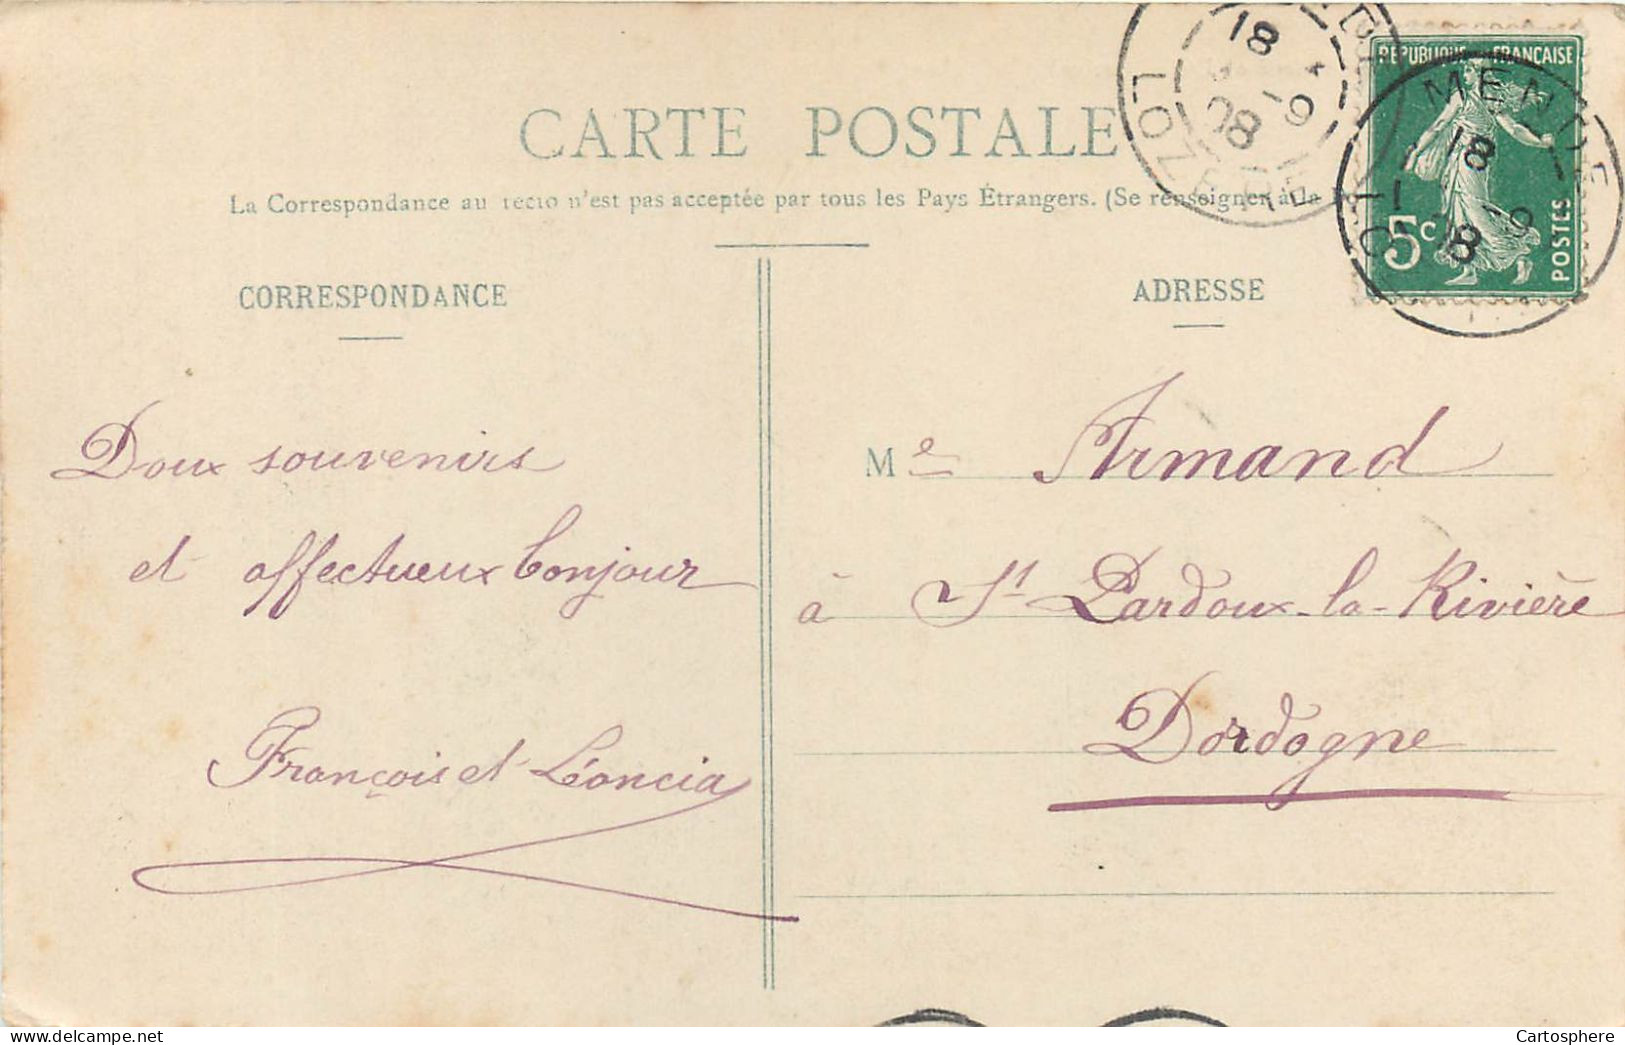 CARTE POSTALE
La Correspondance au recto n'est pas acceptée par tous les Pays Étrangers. (Se renseigner à la
CORRESPONDANCE
ADRESSE
REPUBLIQUE FRANÇAISE
5c POSTES
MENDE
18
-9
08
LOZERE
18
-9
08
Doux souvenirs
et affectueux bonjour
François et Léoncia
Me Armand
à St Pardoux-la-Rivière
Dordogne
www.delcampe.net
Cartosphere